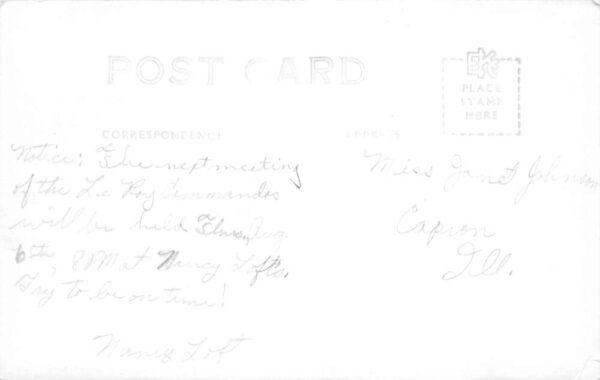 POST CARD
EKC
PLACE
STAMP
HERE
CORRESPONDENCE
ADDRESS
Notice: The next meeting
of the Le Roy Commandos
will be held Thus., Aug.
6th, 8 PM at Nancy Lofts.
Try to be on time!
Nancy Loft
Miss Janet Johnson
Capron
Ill.